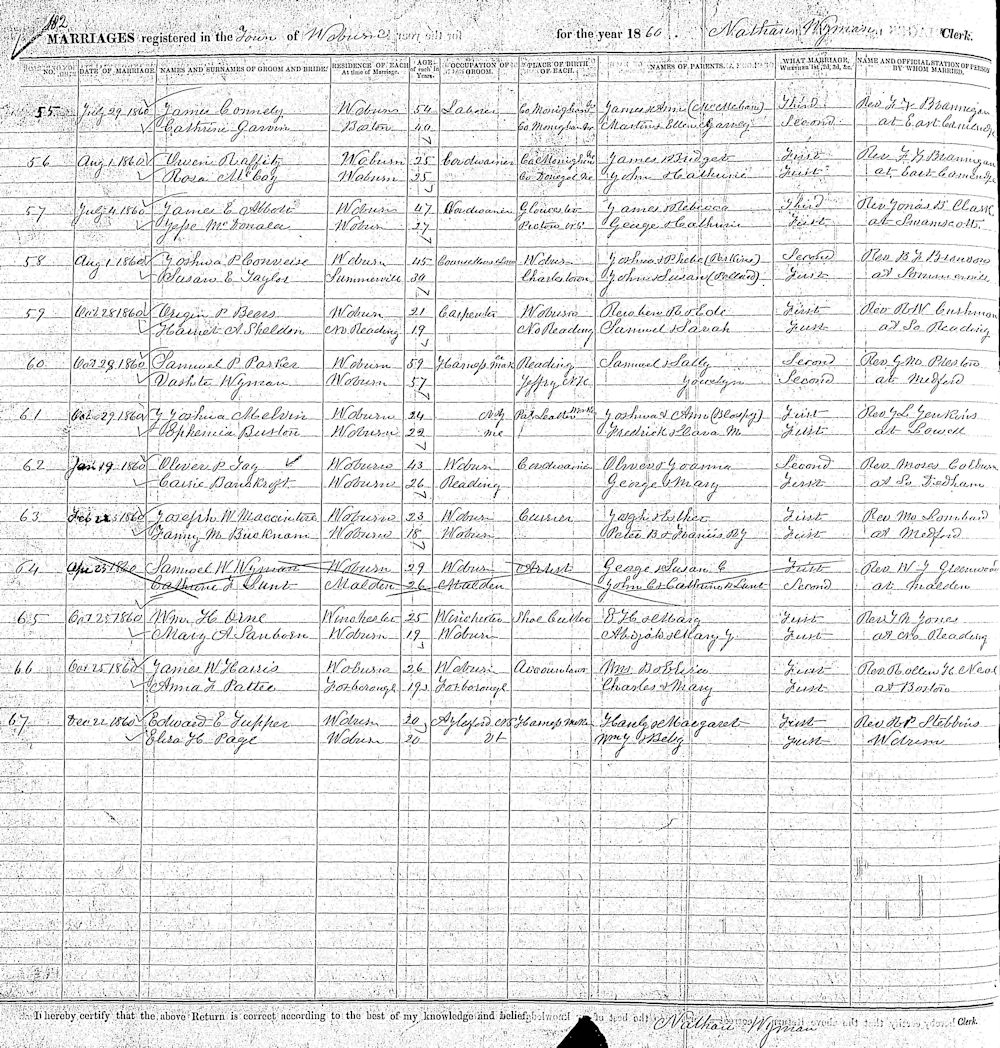 182
MARRIAGES registered in the Town of Woburn for the year 1860. Nathan Wyman Clerk.
NO. DATE OF MARRIAGE. NAMES AND SURNAMES OF GROOM AND BRIDE. RESIDENCE OF EACH At time of Marriage. AGE of each in Years. OCCUPATION OF GROOM. PLACE OF BIRTH OF EACH. NAMES OF PARENTS. WHAT MARRIAGE, Whether 1st, 2d, 3d, &c. NAME AND OFFICIAL STATION OF PERSON BY WHOM MARRIED.
55 July 29 1860 James Connely Woburn 54 Laborer Co Monighan Ie James & Ann (McMehan) Third Rev F X Brannegan
Cathrine Garvin Boston 40 Co Monighan Ie Martin & Ellen Garvey Second at East Cambridge
56 Aug 1 1860 Owen Raffity Woburn 25 Cordwainer Co Monighan Ie James & Bridget First Rev F X Brannegan
Rosa McCoy Woburn 25 Co Donegal Ie John & Cathrine First at East Cambridge
57 July 4 1860 James E Abbott Woburn 47 Cordwainer Glocester James & Rebecca Third Rev Jonas B Clark
Jesse McDonald Woburn 27 Pictou N.S. George & Cathrine First at Swamscott
58 Aug 1 1860 Joshua P Converse Woburn 45 Woburn Joshua & Phebe (Perkins) Second Rev B F Bronson
Susan E Taylor Summerville 39 Charlestown John & Susan (Pollard) First at Sommerville
59 Oct 28 1860 Origin P Beers Woburn 21 Carpenter Woburn Reuben R & Ede First Rev R W Cushman
Harriet A Sheldon No Reading 19 No Reading Samuel & Sarah First at So Reading
60 Oct 29 1860 Samuel P Parker Woburn 59 Harness Mak Reading Samuel & Sally Second Rev J M Preston
Vashti Wyman Woburn 57 Jeffry N.H. Jowelyn Second at Medford
61 Oct 29 1860 Joshua Melvin Woburn 24 Pat Leather Joshua & Ann First Rev J L Jenkins
Ephemia Buston Woburn 22 Me Fredrick & Lava M First at Lowell
62 Jan 19 1860 Oliver P Fay Woburn 43 Woburn Cordwainer Oliver & Joanna Second Rev Moses Colburn
Carrie Bankroft Woburn 26 Reading George & Mary First at So Dedham
63 Feb 22 1860 Joseph W Maccintire Woburn 23 Woburn Currier Joseph & Esther First Rev Mr Lombard
Fanny M Bucknam Woburn 18 Woburn Peter B & Francis By First at Medford
64 Apr 25 1860 Samuel W Wyman Woburn 29 Woburn Artist George & Susan E First Rev W J Greenwood
Cathrine F Lunt Malden 26 Malden John C & Cathrine S Lunt Second at Malden
65 Oct 25 1860 Wm. H Orne Winchester 25 Winchester Shoe Cutter D H & Mary First Rev T N Jones
Mary A Sanborn Woburn 19 Woburn Abijah & Mary J First at No Reading
66 Oct 25 1860 James W Harris Woburn 26 Woburn Accountant Wm. B & Eliza First Rev Rollin H Neal
Anna F Pattee Foxborough 19 Foxborough Charles & Mary First at Boston
67 Dec 22 1860 Edward E Tupper Woburn 20 Aylesford N.S. Harness Maker Handy & Margaret First Rev R P Stebbins
Eliza H Page Woburn 20 Vt Wm J & Betsy First Woburn
I hereby certify that the above Return is correct according to the best of my knowledge and belief.
Nathan Wyman Clerk.